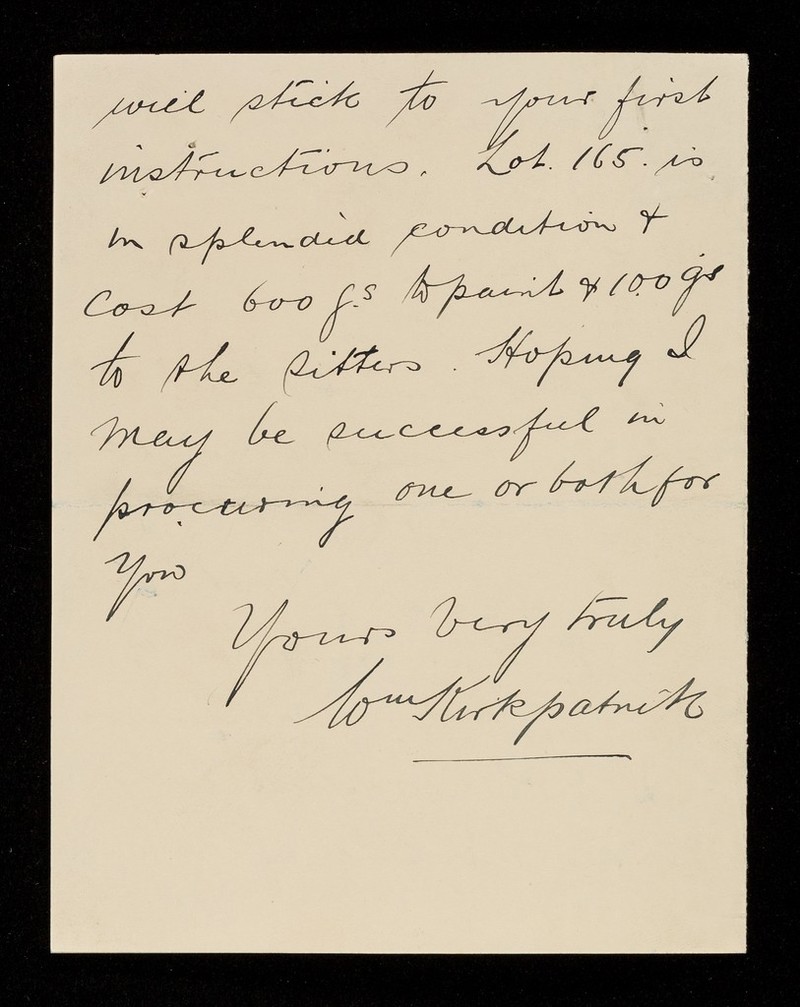 will stick to your first
instructions. Lot. 165. is
in splendid condition &
cost 600 gs to paint & 100 gs
to the sitters. Hoping I
may be successful in
procuring one or both for
you
Yours very truly
Wm Kirkpatrick